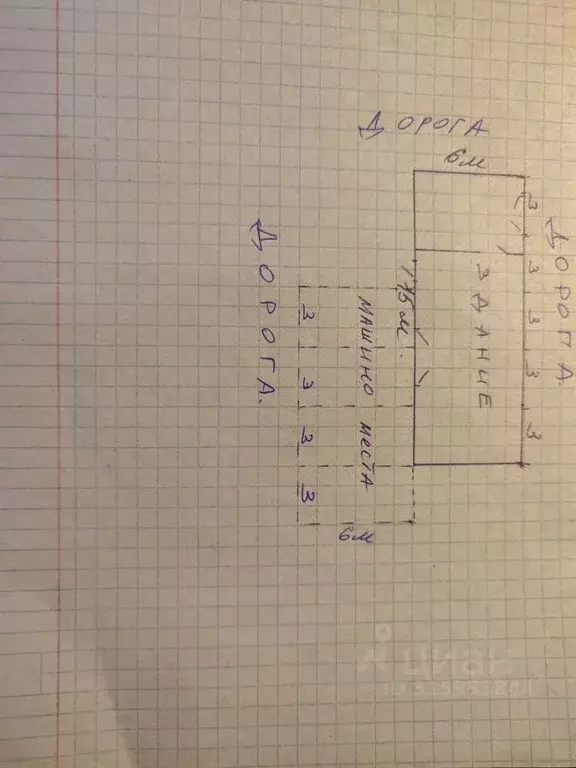 ДОРОГА
6м
ДОРОГА.
3
3
3
3
3
ЗДАНИЕ
МАШИНО МЕСТА
3
3
3
3
6м
ДОРОГА.
циан